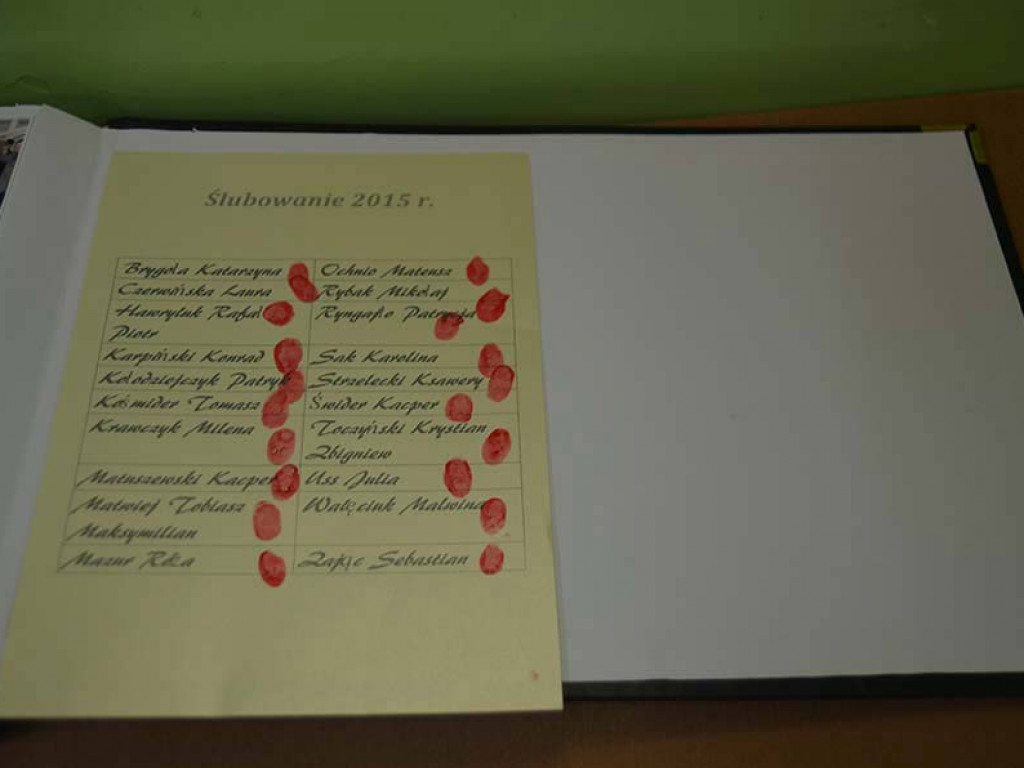 Ślubowanie 2015 r.
Brygoła Katarzyna
Czerwińska Laura
Hawryluk Rafał
Piotr
Karpiński Konrad
Kołodziejczyk Patryk
Kośmider Tomasz
Krawczyk Milena
Matuszewski Kacper
Matwiej Tobiasz
Maksymilian
Mazur Róża
Ochnio Mateusz
Rybak Mikołaj
Ryngajło Patrycja
Sak Karolina
Strzelecki Ksawery
Świder Kacper
Toczyński Krystian
Zbigniew
Uss Julia
Walęciuk Malwina
Zając Sebastian